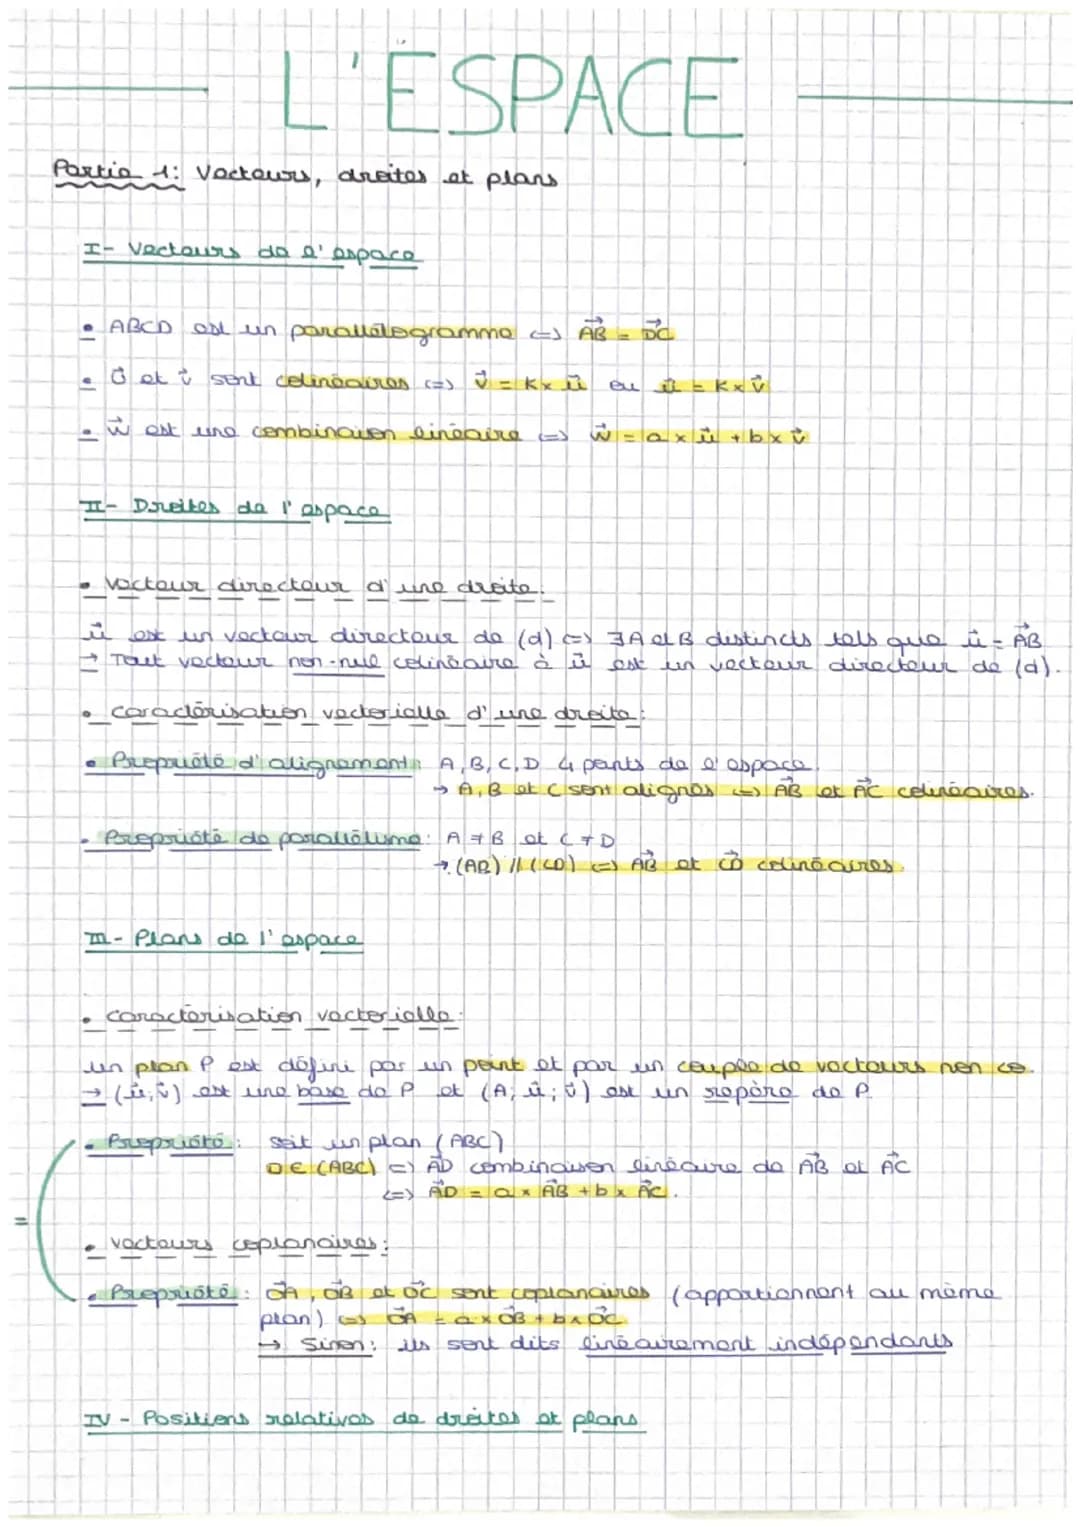 L'ESPACE
Partie 1: Vecteurs, droites et plans
I- Vecteurs de l'espace
• ABCD est un parallélogramme <=> AB⃗ = DC⃗
• u⃗ et v⃗ sont colinéaires <=> v⃗ = k × u⃗ ou u⃗ = k × v⃗
• w⃗ est une combinaison linéaire <=> w⃗ = a × u⃗ + b × v⃗
II- Droites de l'espace
• Vecteur directeur d'une droite:
u⃗ est un vecteur directeur de (d) <=> ∃A et B distincts tels que u⃗ = AB⃗
→ Tout vecteur non-nul colinéaire à u⃗ est un vecteur directeur de (d).
• caractérisation vectorielle d'une droite:
• Propriété d'alignement: A, B, C, D 4 points de l'espace.
→ A, B et C sont alignés <=> AB⃗ et AC⃗ colinéaires.
• Propriété de parallélisme: A ≠ B et C ≠ D
→ (AB) // (CD) <=> AB⃗ et CD⃗ colinéaires.
III- Plans de l'espace
• caractérisation vectorielle:
un plan P est défini par un point et par un couple de vecteurs non co.
→ (u⃗; v⃗) est une base de P et (A; u⃗; v⃗) est un repère de P.
• Propriété: soit un plan (ABC)
D ∈ (ABC) <=> AD⃗ combinaison linéaire de AB⃗ et AC⃗
<=> AD⃗ = a × AB⃗ + b × AC⃗.
=
• vecteurs coplanaires:
• Propriété: OA⃗, OB⃗ et OC⃗ sont coplanaires (appartiennent au même
plan) <=> OA⃗ = a × OB⃗ + b × OC⃗
→ Sinon: ils sont dits linéairement indépendants
IV - Positions relatives de droites et plans